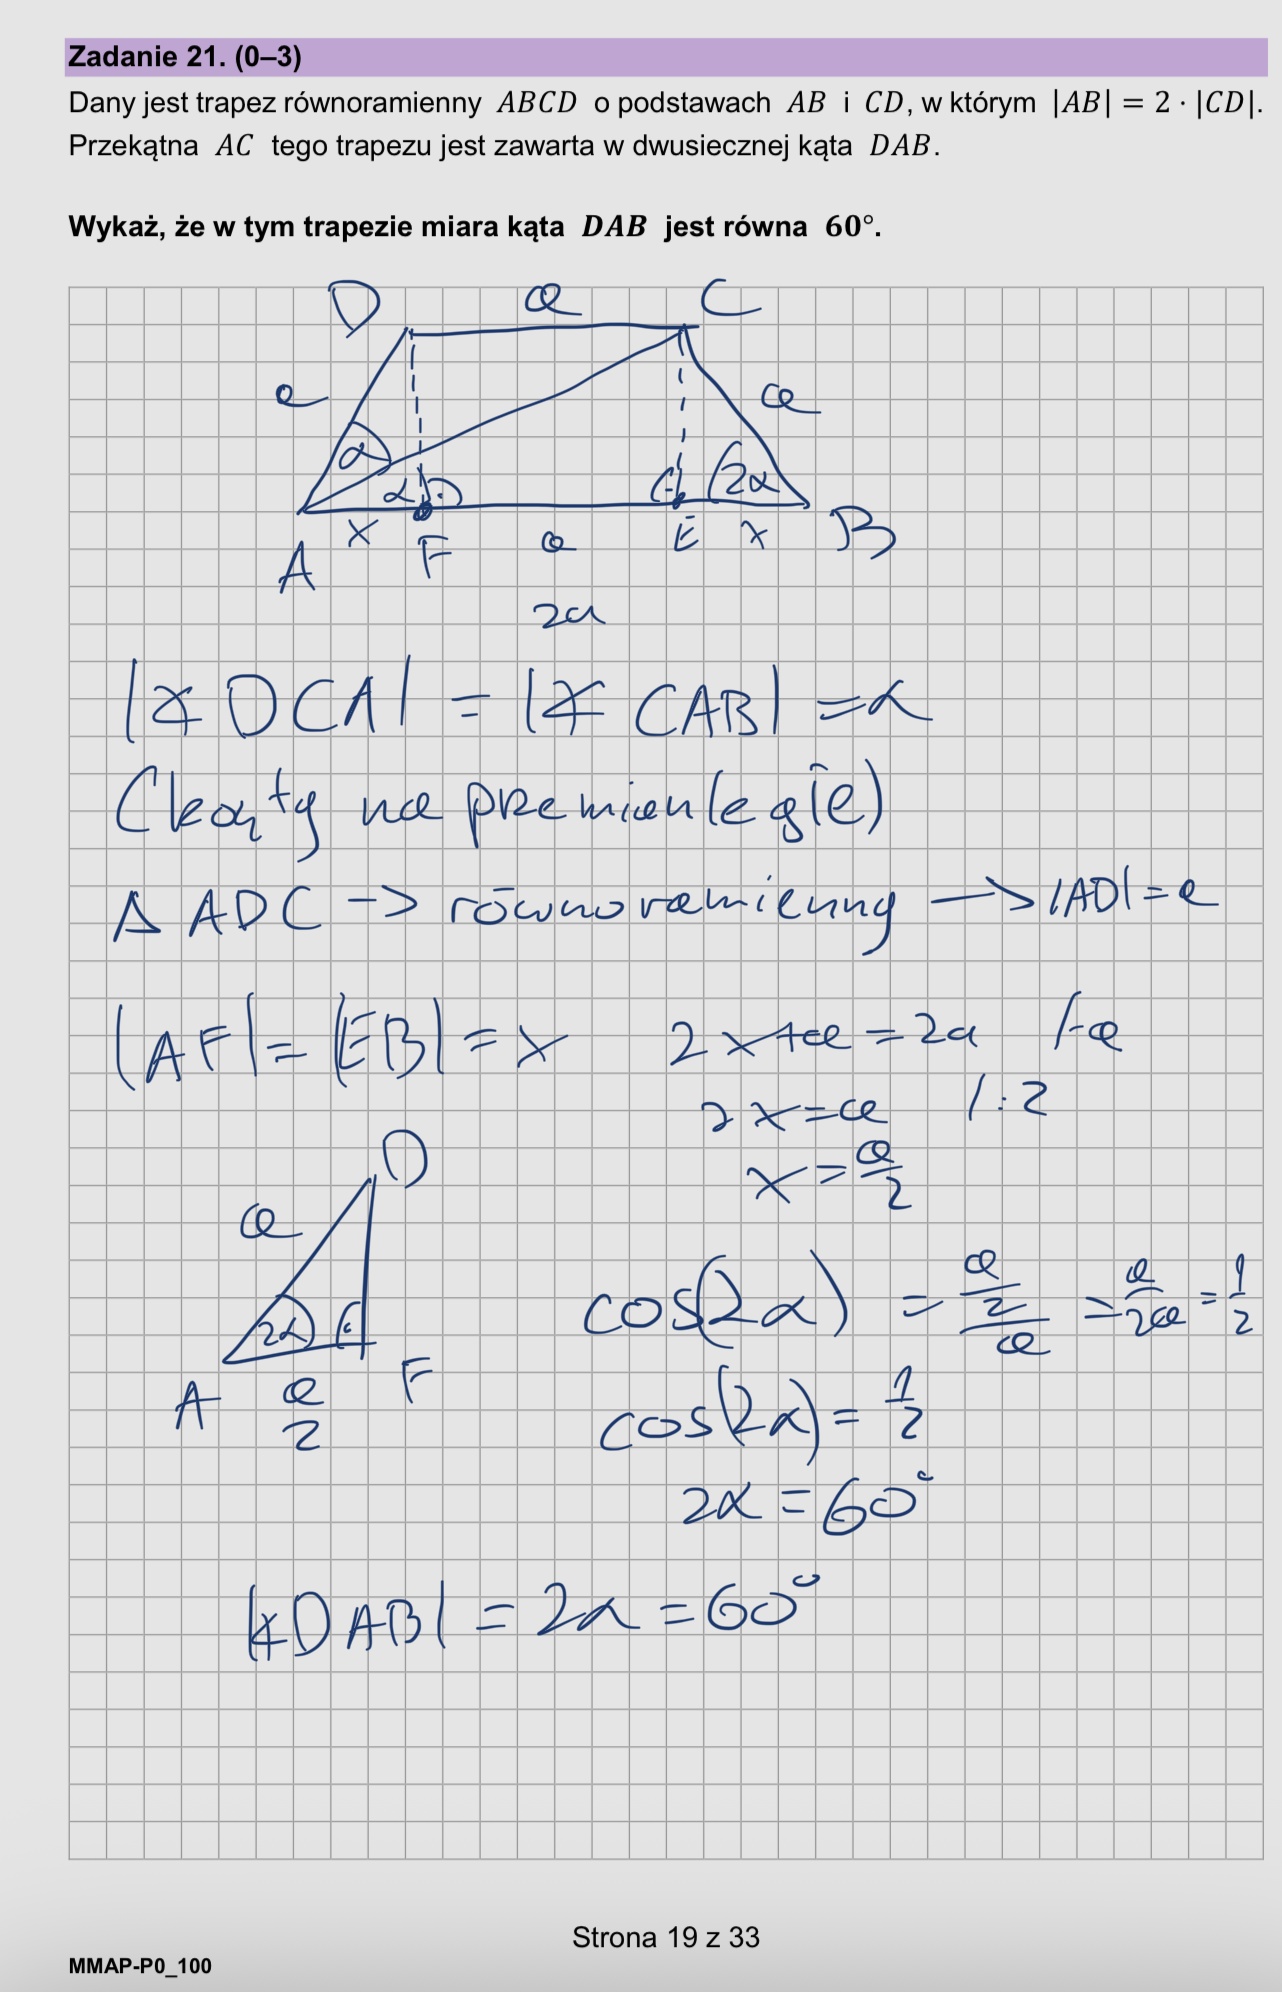 Zadanie 21. (0–3)
Dany jest trapez równoramienny ABCD o podstawach AB i CD, w którym |AB| = 2 · |CD|.
Przekątna AC tego trapezu jest zawarta w dwusiecznej kąta DAB.
Wykaż, że w tym trapezie miara kąta DAB jest równa 60°.
D a C
a a
α
α 2α
x F a E x B
A
2a
|∡ DCA| = |∡ CAB| = α
(kąty naprzemianległe)
Δ ADC -> równoramienny -> |AD| = a
|AF| = |EB| = x 2x+a = 2a /-a
2x = a /:2
x = a/2
D
a
2α
A a/2 F
cos(2α) = (a/2)/a = a/2a = 1/2
cos(2α) = 1/2
2α = 60°
|∡DAB| = 2α = 60°
Strona 19 z 33
MMAP-P0_100